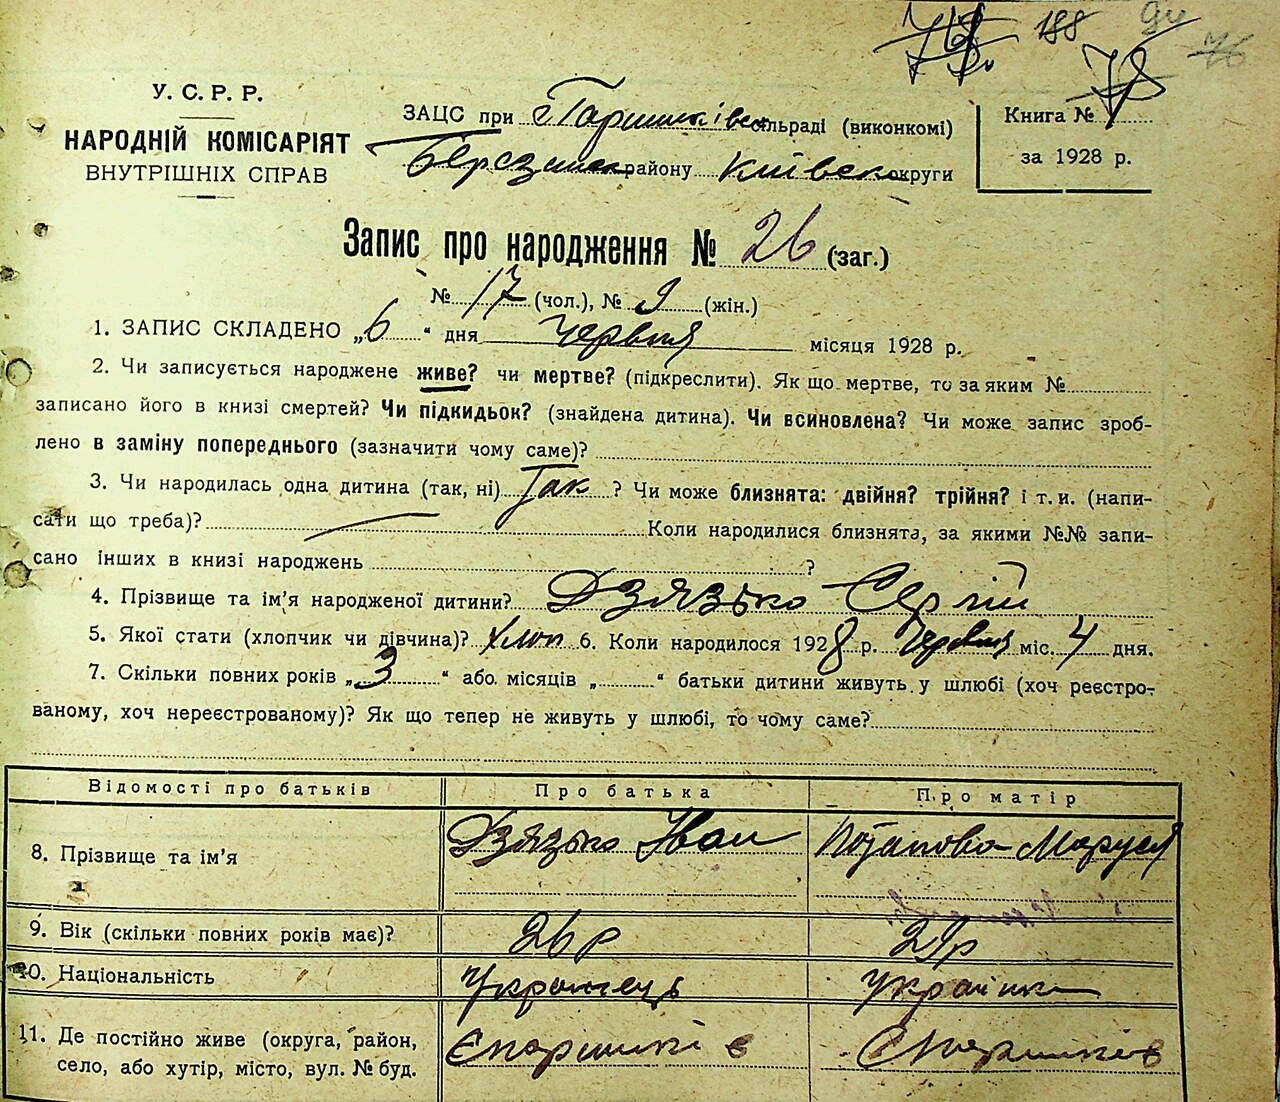 188
78
У. С. Р. Р.
НАРОДНІЙ КОМІСАРІЯТ
ВНУТРІШНІХ СПРАВ
ЗАЦС при с Паришківск сільраді (виконкомі)
Березанськ району Київськ округи
Книга №
за 1928 р.
Запис про народження № 26 (заг.)
№ 17 (чол.), № 9 (жін.)
1. ЗАПИС СКЛАДЕНО „6“ дня червня місяця 1928 р.
2. Чи записується народжене живе? чи мертве? (підкреслити). Як що мертве, то за яким №
записано його в книзі смертей? Чи підкидьок? (знайдена дитина). Чи всиновлена? Чи може запис зроб-
лено в заміну попереднього (зазначити чому саме)?
3. Чи народилась одна дитина (так, ні) Так ? Чи може близнята: двійня? трійня? і т. и. (напи-
сати що треба)? Коли народилися близнята, за якими №№ запи-
сано інших в книзі народжень ?
4. Прізвище та ім’я народженої дитини? Дзязько Сергій
5. Якої стати (хлопчик чи дівчина)? хлоп 6. Коли народилося 1928 р. Червня міс. 4 дня.
7. Скільки повних років „3“ або місяців „ “ батьки дитини живуть у шлюбі (хоч реєстро-
ваному, хоч нереєстрованому)? Як що тепер не живуть у шлюбі, то чому саме?
Відомості про батьків Про батька Про матір
8. Прізвище та ім’я Дзязько Іван Потапова Маруся
9. Вік (скільки повних років має)? 26 р 29 р
10. Національність Українець Українка
11. Де постійно живе (округа, район, С Паришків С Паришків
село, або хутір, місто, вул. № буд.